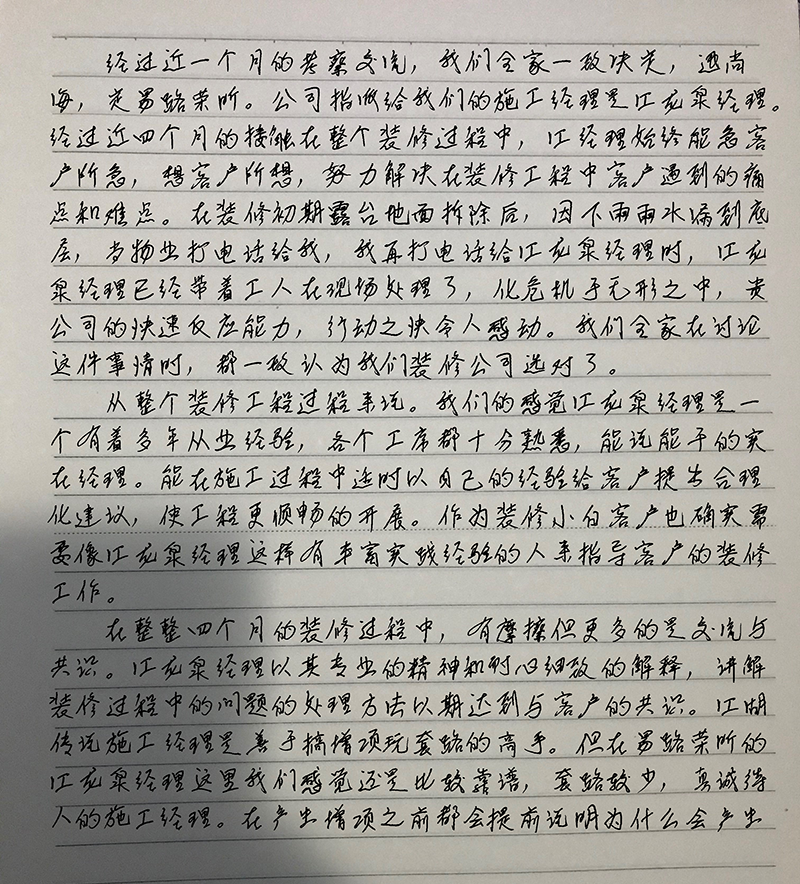 经过近一个月的考察交流，我们全家一致决定，选尚
海，定易路荣昕。公司指派给我们的施工经理是江充泉经理。
经过近四个月的接触在整个装修过程中，江经理始终能急客
户所急，想客户所想，努力解决在装修工程中客户遇到的痛
点和难点。在装修初期露台地面拆除后，因下雨雨水漏到底
层，当物业打电话给我，我再打电话给江充泉经理时，江充
泉经理已经带着工人在现场处理了，化危机于无形之中，贵
公司的快速反应能力，行动之快令人感动。我们全家在讨论
这件事情时，都一致认为我们装修公司选对了。
从整个装修工程过程来说。我们的感觉江充泉经理是一
个有着多年从业经验，各个工序都十分熟悉，能说能干的实
在经理。能在施工过程中适时以自己的经验给客户提出合理
化建议，使工程更顺畅的开展。作为装修小白客户也确实需
要像江充泉经理这样有丰富实践经验的人来指导客户的装修
工作。
在整整四个月的装修过程中，有摩擦但更多的是交流与
共识。江充泉经理以其专业的精神和耐心细致的解释，讲解
装修过程中的问题的处理方法以期达到与客户的共识。江湖
传说施工经理是善于搞增项玩套路的高手。但在易路荣昕的
江充泉经理这里我们感觉还是比较靠谱，套路较少，真诚待
人的施工经理。在产生增项之前都会提前说明为什么会产生